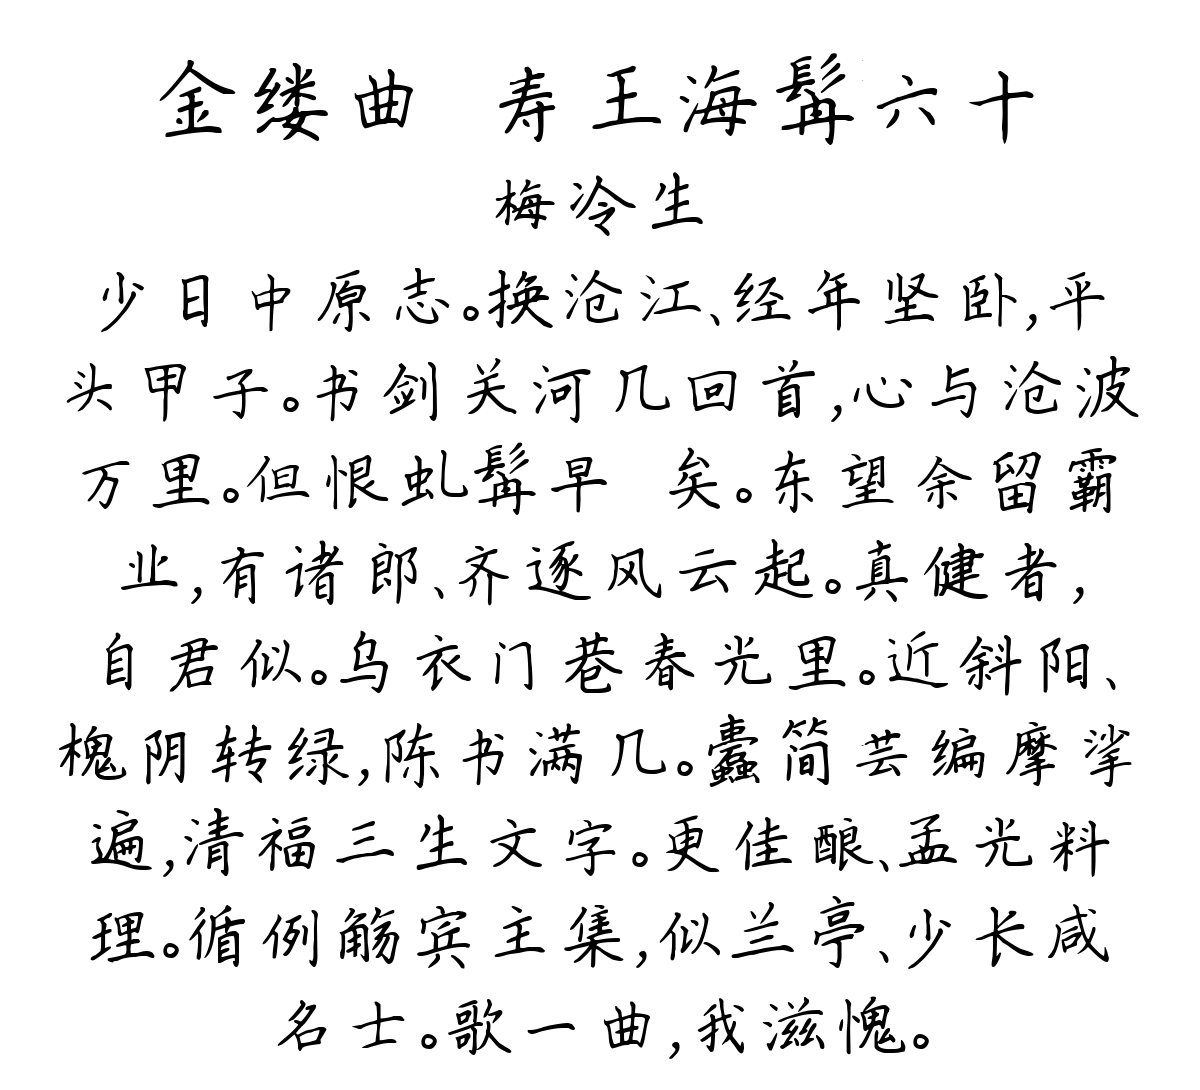 金缕曲 寿王海髯六十
梅冷生
少日中原志。换沧江、经年坚卧,平
头甲子。书剑关河几回首,心与沧波
万里。但恨虬髯早 矣。东望余留霸
业,有诸郎、齐逐风云起。真健者,
自君似。乌衣门巷春光里。近斜阳、
槐阴转绿,陈书满几。蠹简芸编摩挲
遍,清福三生文字。更佳酿、孟光料
理。循例觞宾主集,似兰亭、少长咸
名士。歌一曲,我滋愧。